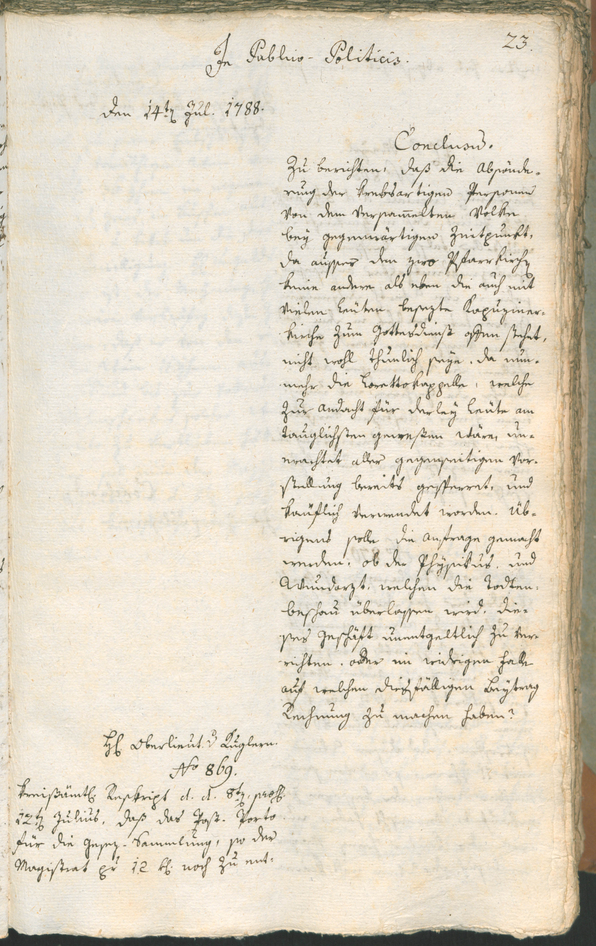 23.
In Publico-Politicis.
den 14t Jul. 1788.
Conclusum.
Zu berichten, daß die Absönde-
rung der krebsartigen Personen
von dem versam̅elten Volke
bey gegenwärtigen Zeitpunkt,
da ausser den zwo Pfarrkirchen
keine andere als eben die auch mit
vielen Leüten besezte Kapuziner-
kirche zum Gottesdienst offen stehet,
nicht wohl thunlich seye, da nun-
mehr die Loretto Kappelle, welche
zur Andacht für derley Leüte am
tauglichsten gewesen wäre, un-
erachtet aller gegenseitigen Vor-
stellung bereits gesperret, und
kaüflich verwendet worden. Üb-
rigens solle die Anfrage gemacht
werden, ob der Physikus, und
Wundarzt, welchen die Todten-
beschau überlassen wird, die-
ses Geschäft unentgeltlich zu ver-
richten, oder im widrigen Falle
auf welchen diesfälligen Beytrag
Rechnung zu machen haben?
H Oberlieut. Kuglern.
No 869.
Kreisämtl Reskript d. d. 8t, praes.
12t Julius, daß das Post-Porto
für die Gesez-Sammlung, so der
Magistrat pr 12 kr noch zu ent-